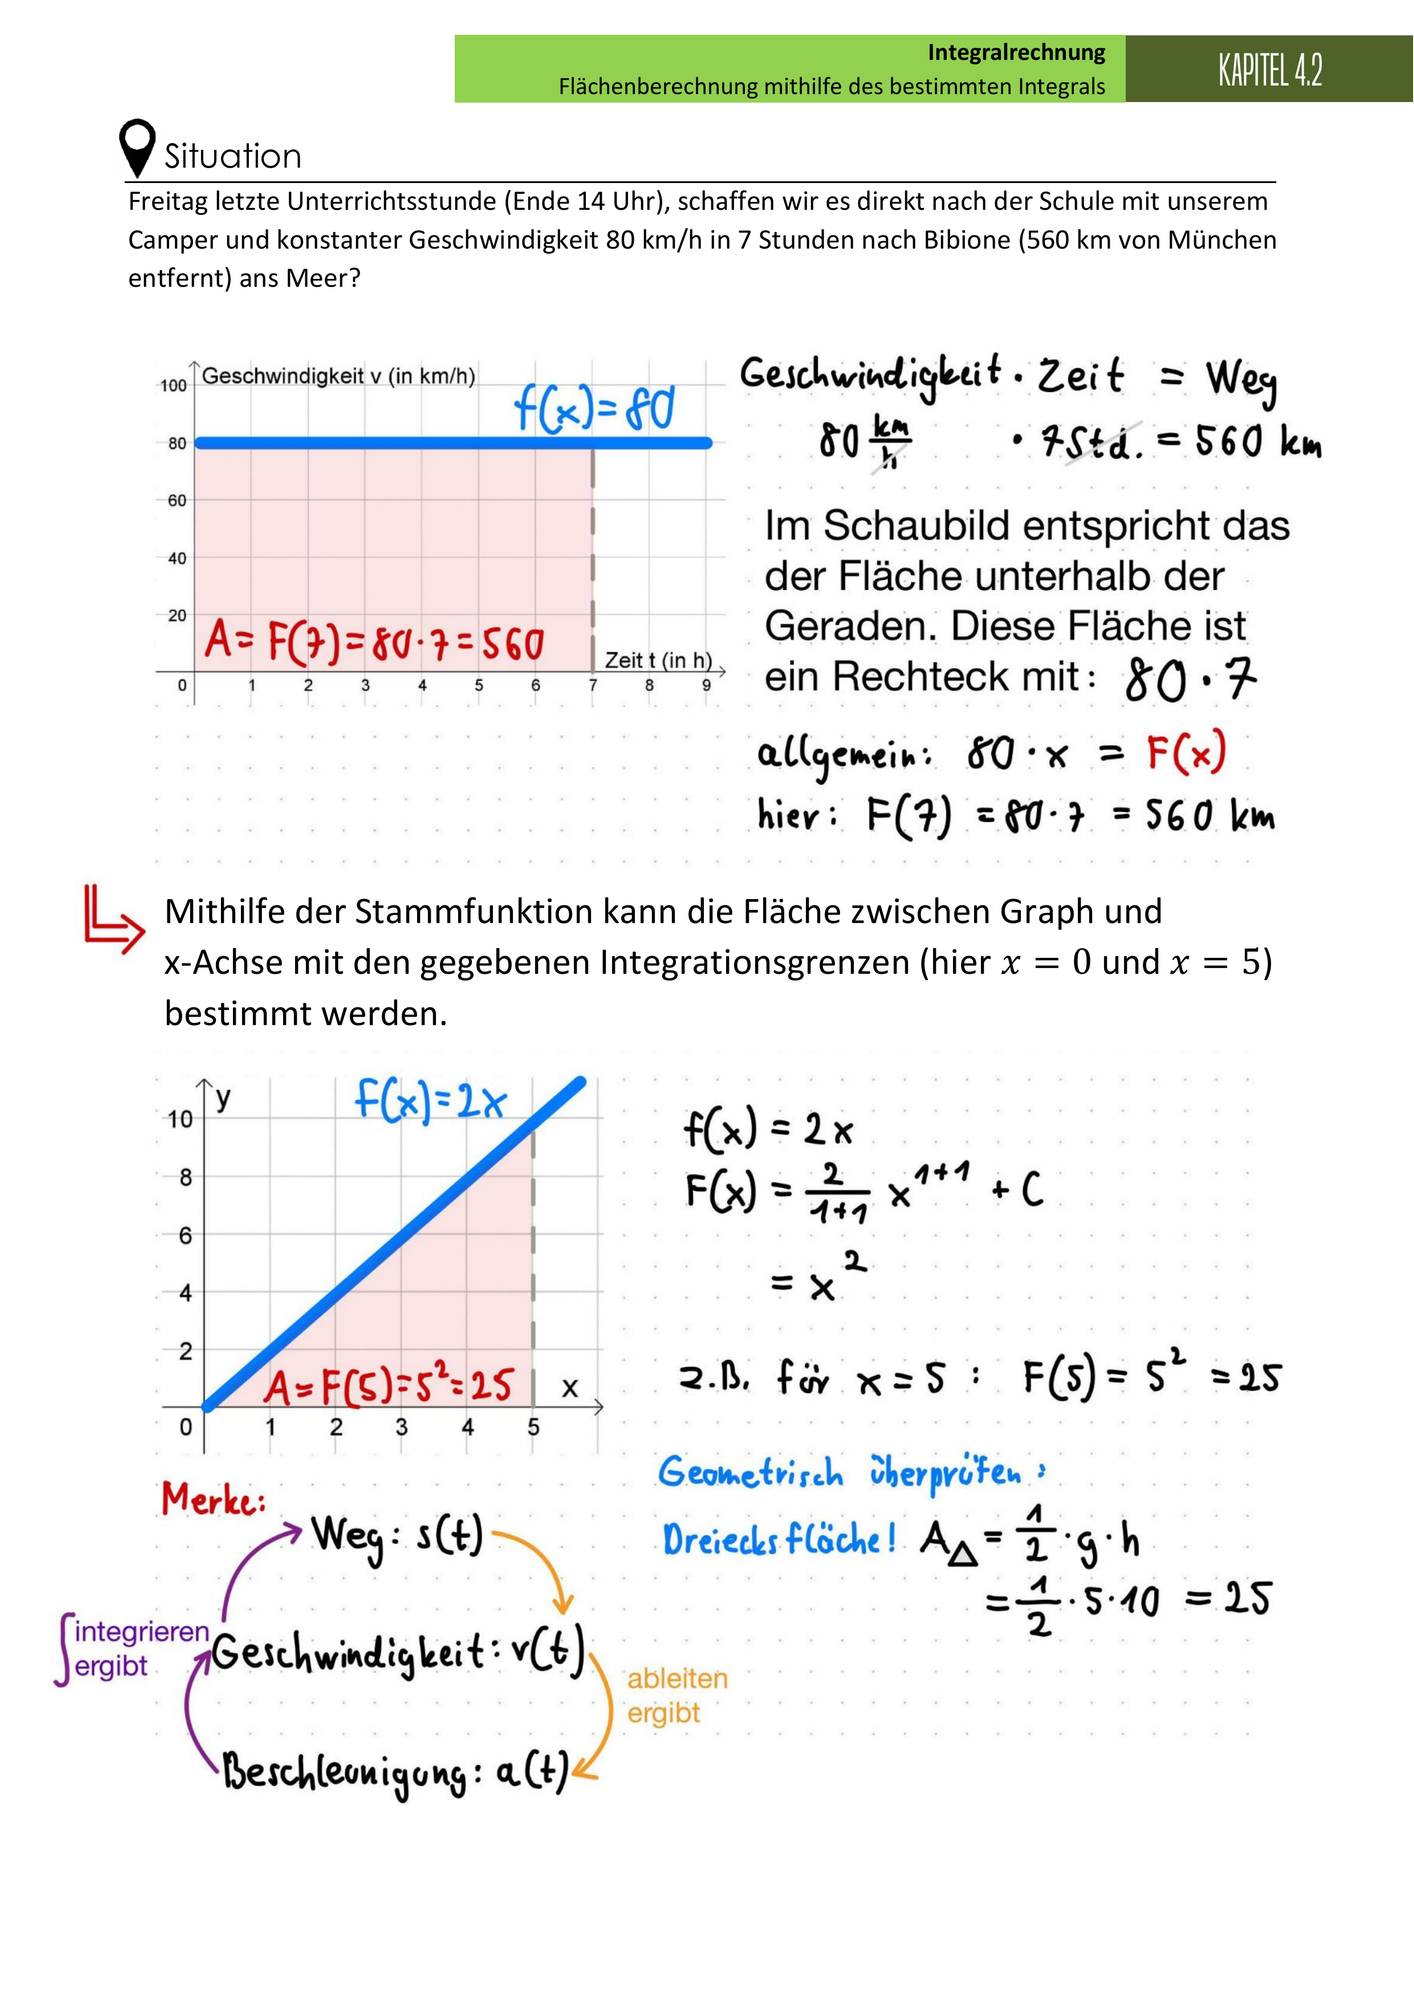 Integralrechnung
Flächenberechnung mithilfe des bestimmten Integrals
KAPITEL 4.2
Situation
Freitag letzte Unterrichtsstunde (Ende 14 Uhr), schaffen wir es direkt nach der Schule mit unserem
Camper und konstanter Geschwindigkeit 80 km/h in 7 Stunden nach Bibione (560 km von München
entfernt) ans Meer?
Geschwindigkeit v (in km/h)
f(x)=80
100
80
60
40
20
A= F(7)=80·7=560
Zeit t (in h)
0 1 2 3 4 5 6 7 8 9
Geschwindigkeit · Zeit = Weg
80 km/h · 7Std. = 560 km
Im Schaubild entspricht das
der Fläche unterhalb der
Geraden. Diese Fläche ist
ein Rechteck mit: 80·7
allgemein: 80·x = F(x)
hier: F(7) =80·7 = 560 km
Mithilfe der Stammfunktion kann die Fläche zwischen Graph und
x-Achse mit den gegebenen Integrationsgrenzen (hier x = 0 und x = 5)
bestimmt werden.
y
f(x)=2x
10
8
6
4
2
A=F(5)=5²=25
x
0 1 2 3 4 5
f(x) = 2x
F(x) = 2/(1+1) x^(1+1) + C
= x²
z.B. für x=5 : F(5)= 5² =25
Geometrisch überprüfen:
Dreiecksfläche! A△ = 1/2 ·g·h
= 1/2 ·5·10 =25
Merke:
Weg: s(t)
∫ integrieren
ergibt
Geschwindigkeit: v(t)
ableiten
ergibt
Beschleunigung: a(t)